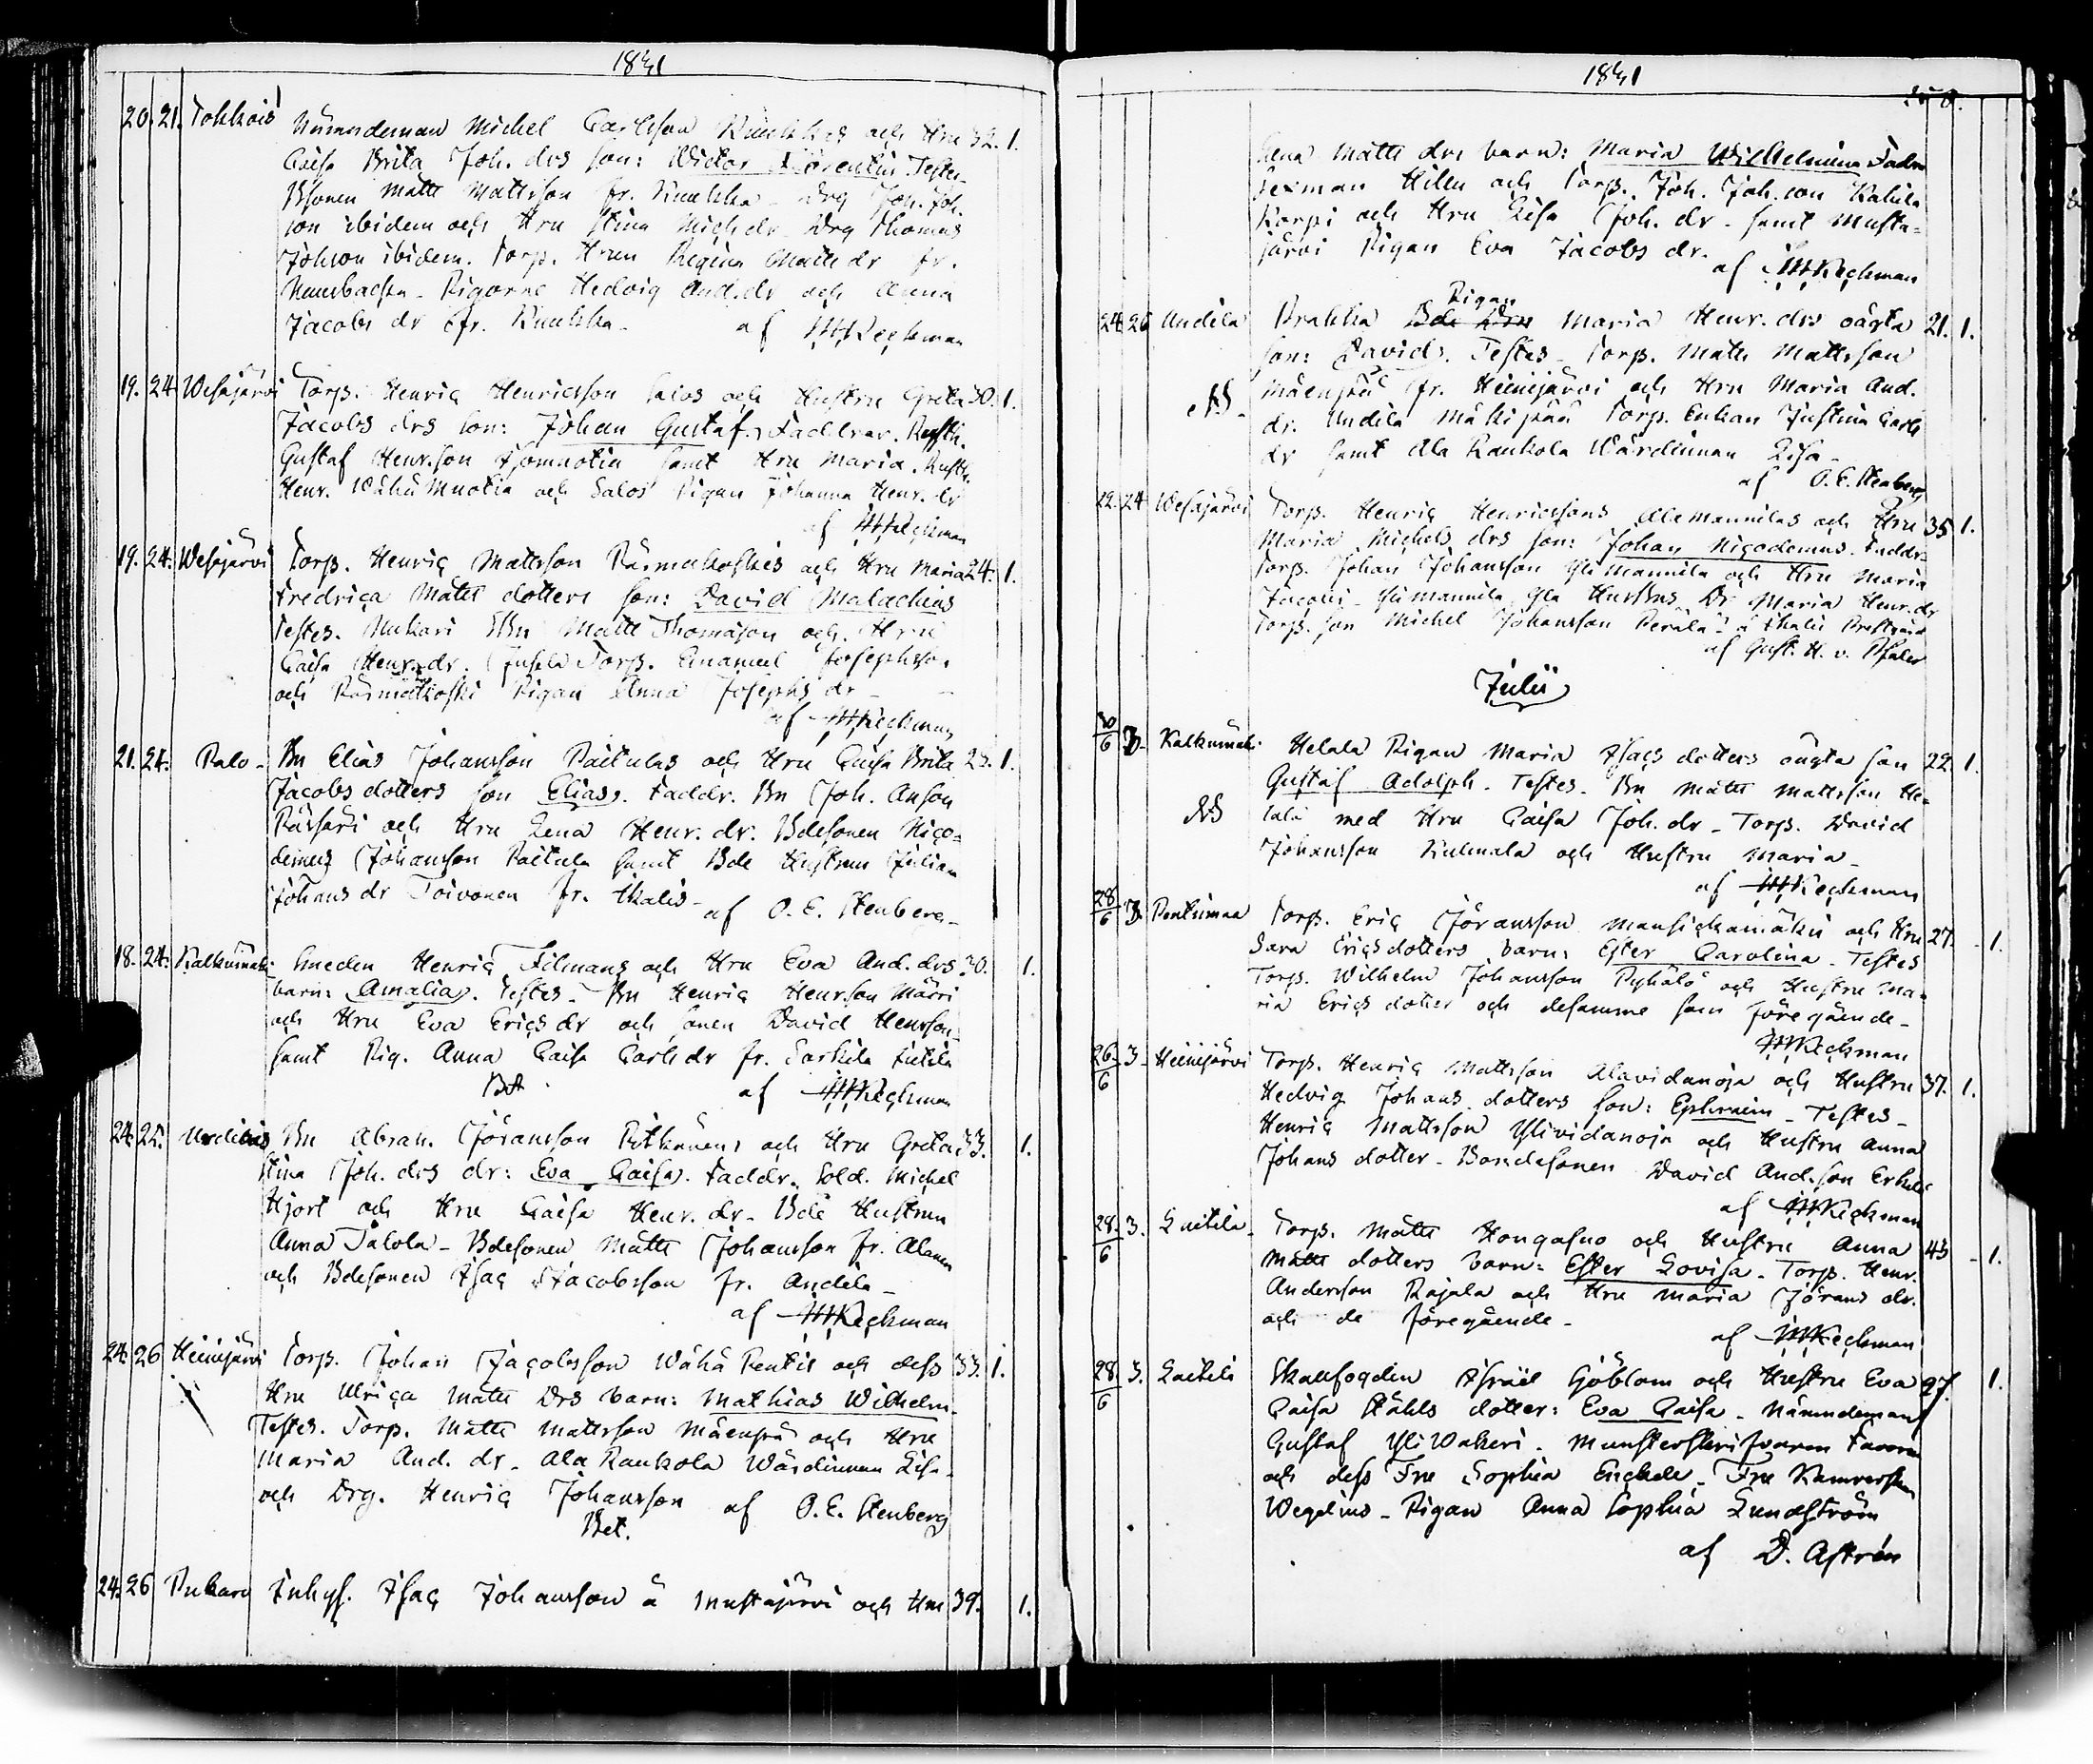 1841
20. 21. Tokkois Nämndeman Michel Carlsson Kuukkas och Hru 32. 1.
Caisa Brita Joh. drs son: Wictor Florentin Testes
Bsonen Matts Mattsson fr. Kuukka. Drg Joh. Joh.
son ibidem och Hru Stina Mich dr. Drg Thomas
Johson ibidem. Torp. Hrun Regina Matts dr fr.
Pigorne Hedvig And. dr och Anna
Jacobs dr fr. Kuukka. af Reckman
19. 24 Wesajärvi Torp. Henric Henricsson Salos och Hustru Greta 30. 1.
Jacobs drs son: Johan Gustaf. Faddrar. Rusth.
Gustaf Henr.son Isomuotia samt Hru Maria. Rusth.
Henr. Wähä Muotia och Salos Pigan Johanna Henr. dr
af Reckman
19. 24. Wesajärvi Torp. Henric Mattsson Räsmäkoskis och Hru Maria 24. 1.
Fredrica Matts dotters son: David Malachias
Testes. Mukari Bn Matts Thomason och Hru
Caisa Henr. dr. Torp. Emanuel Josephsson
och Pigan Anna Josephs dr
af Reckman
21. 24. Palo. Bn Elias Johansson Paitulas och Hru Caisa Brita 23. 1.
Jacobs dotters son Elias. Faddr. Bn Joh. Anson
Pärssäri och Hru Lena Henr. dr. Bdesonen Nico-
demus Johansson Paitula samt Bde Hustrun Julian
Johans dr Toivonen fr. Ikalis. af O. E. Stenberg
18. 24. Kalkunmäki Smeden Henric Filmans och Hru Eva And. drs 30. 1.
barn: Amalia. Testes. Bn Henric Henrson Märri
och Hru Eva Erics dr och sonen David Henrson
samt Pig. Anna Caisa Carls dr fr. Sarkila
Bt af Reckman
24. 25. Undila Bn Abrah. Jöransson Pitkänens och Hru Greta 33. 1.
Stina Joh. drs dr: Eva Caisa. Faddr. Sold. Michel
Hjort och Hru Caisa Henr. dr. Bde Hustrun
Anna Talola. Bdesonen Matts Johansson fr. Alanen
och Bdesonen Isac Jacobsson fr. Andila
af Reckman
24. 26 Heinijärvi Torp. Johan Jacobsson Wähä Pentis och dess 33. 1.
Hru Ulrica Matts Drs barn: Mathias Wilhelm.
Testes. Torp. Matts Mattsson Mäenpää och Hru
Maria And. dr. Ala Raukola Wärdinnan Lisa.
och Drg. Henric Johansson af O. E. Stenberg
Bet.
24. 26 Pukara Inhys. Isac Johansson å Mustajärvi och Hru 39. 1.
1841
Lena Matts drs barn: Maria Wilhelmina Faddr
Sexman Hileen och Torp. Joh. Joh. son Kalula
Korpi och Hru Lisa Joh. dr. samt Musta-
järvi Pigan Eva Jacobs dr. af Reckman
24. 26 Undila Prakka Bde Drs Pigan Maria Henr. drs oägta 21. 1.
son: David. Testes. Torp. Matts Mattsson
Mäenpää fr. Heinijärvi och Hru Maria And.
NB.
dr. Undila Mäkipää Torp. Enkan Justina Carls
dr samt Ala Raukola Wärdinnan Lisa.
af O. E. Stenberg
22. 24 Wesajärvi Torp. Henric Henricssons Alamannilas och Hru 35 1.
Maria Michels drs son: Johan Nicodemus. Faddr:
Torp. Johan Johansson Yli Mannila och Hru Maria
Jacobs. Yli Mannila Dr Maria Henr. dr
Torp. son Michel Johansson Perälä å Ikalis Prestgård
af Gust. H. v. Pfaler
Julii
30/6 3. Kalkunmäki Helala Pigan Maria Isacs dotters oägta son 22. 1.
Gustaf Adolph. Testes. Bn Matts Mattsson He-
NB lala med Hru Caisa Joh. dr. Torp. David
Johansson Kulmala och Hustru Maria.
af Reckman
28/6 3. Pentinmaa Torp. Eric Jöransson Mansickamäki och Hru 27. 1.
Sara Ericsdotters barn: Ester Carolina. Testes
Torp. Wilhelm Johansson Pyhältö och Hustru Ma-
ria Erics dotter och desamme som föregående.
Reckman
26/6 3. Heinijärvi Torp. Henric Mattsson Alavidanoja och Hustru 37. 1.
Hedvig Johans dotters son: Ephraim. Testes.
Henric Mattsson Ylividanoja och Hustru Anna
Johans dotter. Bondesonen David And. son Erkilä
af Reckman
28/6 3. Luitila. Torp. Matts Hongasuo och Hustru Anna 43 1.
Matts dotters barn: Ester Lovisa. Torp. Henr.
Andersson Rajala och Hru Maria Jörans dr.
och de föregående.
af Reckman
28/6 3. Luitila Skallfogden Israel Sjöblom och Hustru Eva 27. 1.
Caisa Ståhls dotter: Eva Caisa. Nämndeman
Gustaf Yli Wakeri. Munsterskrifvaren Favorin
och dess Fru Sophia Enckele. Fru
Wegelius. Pigan Anna Sophia Lundström
af D. Aström